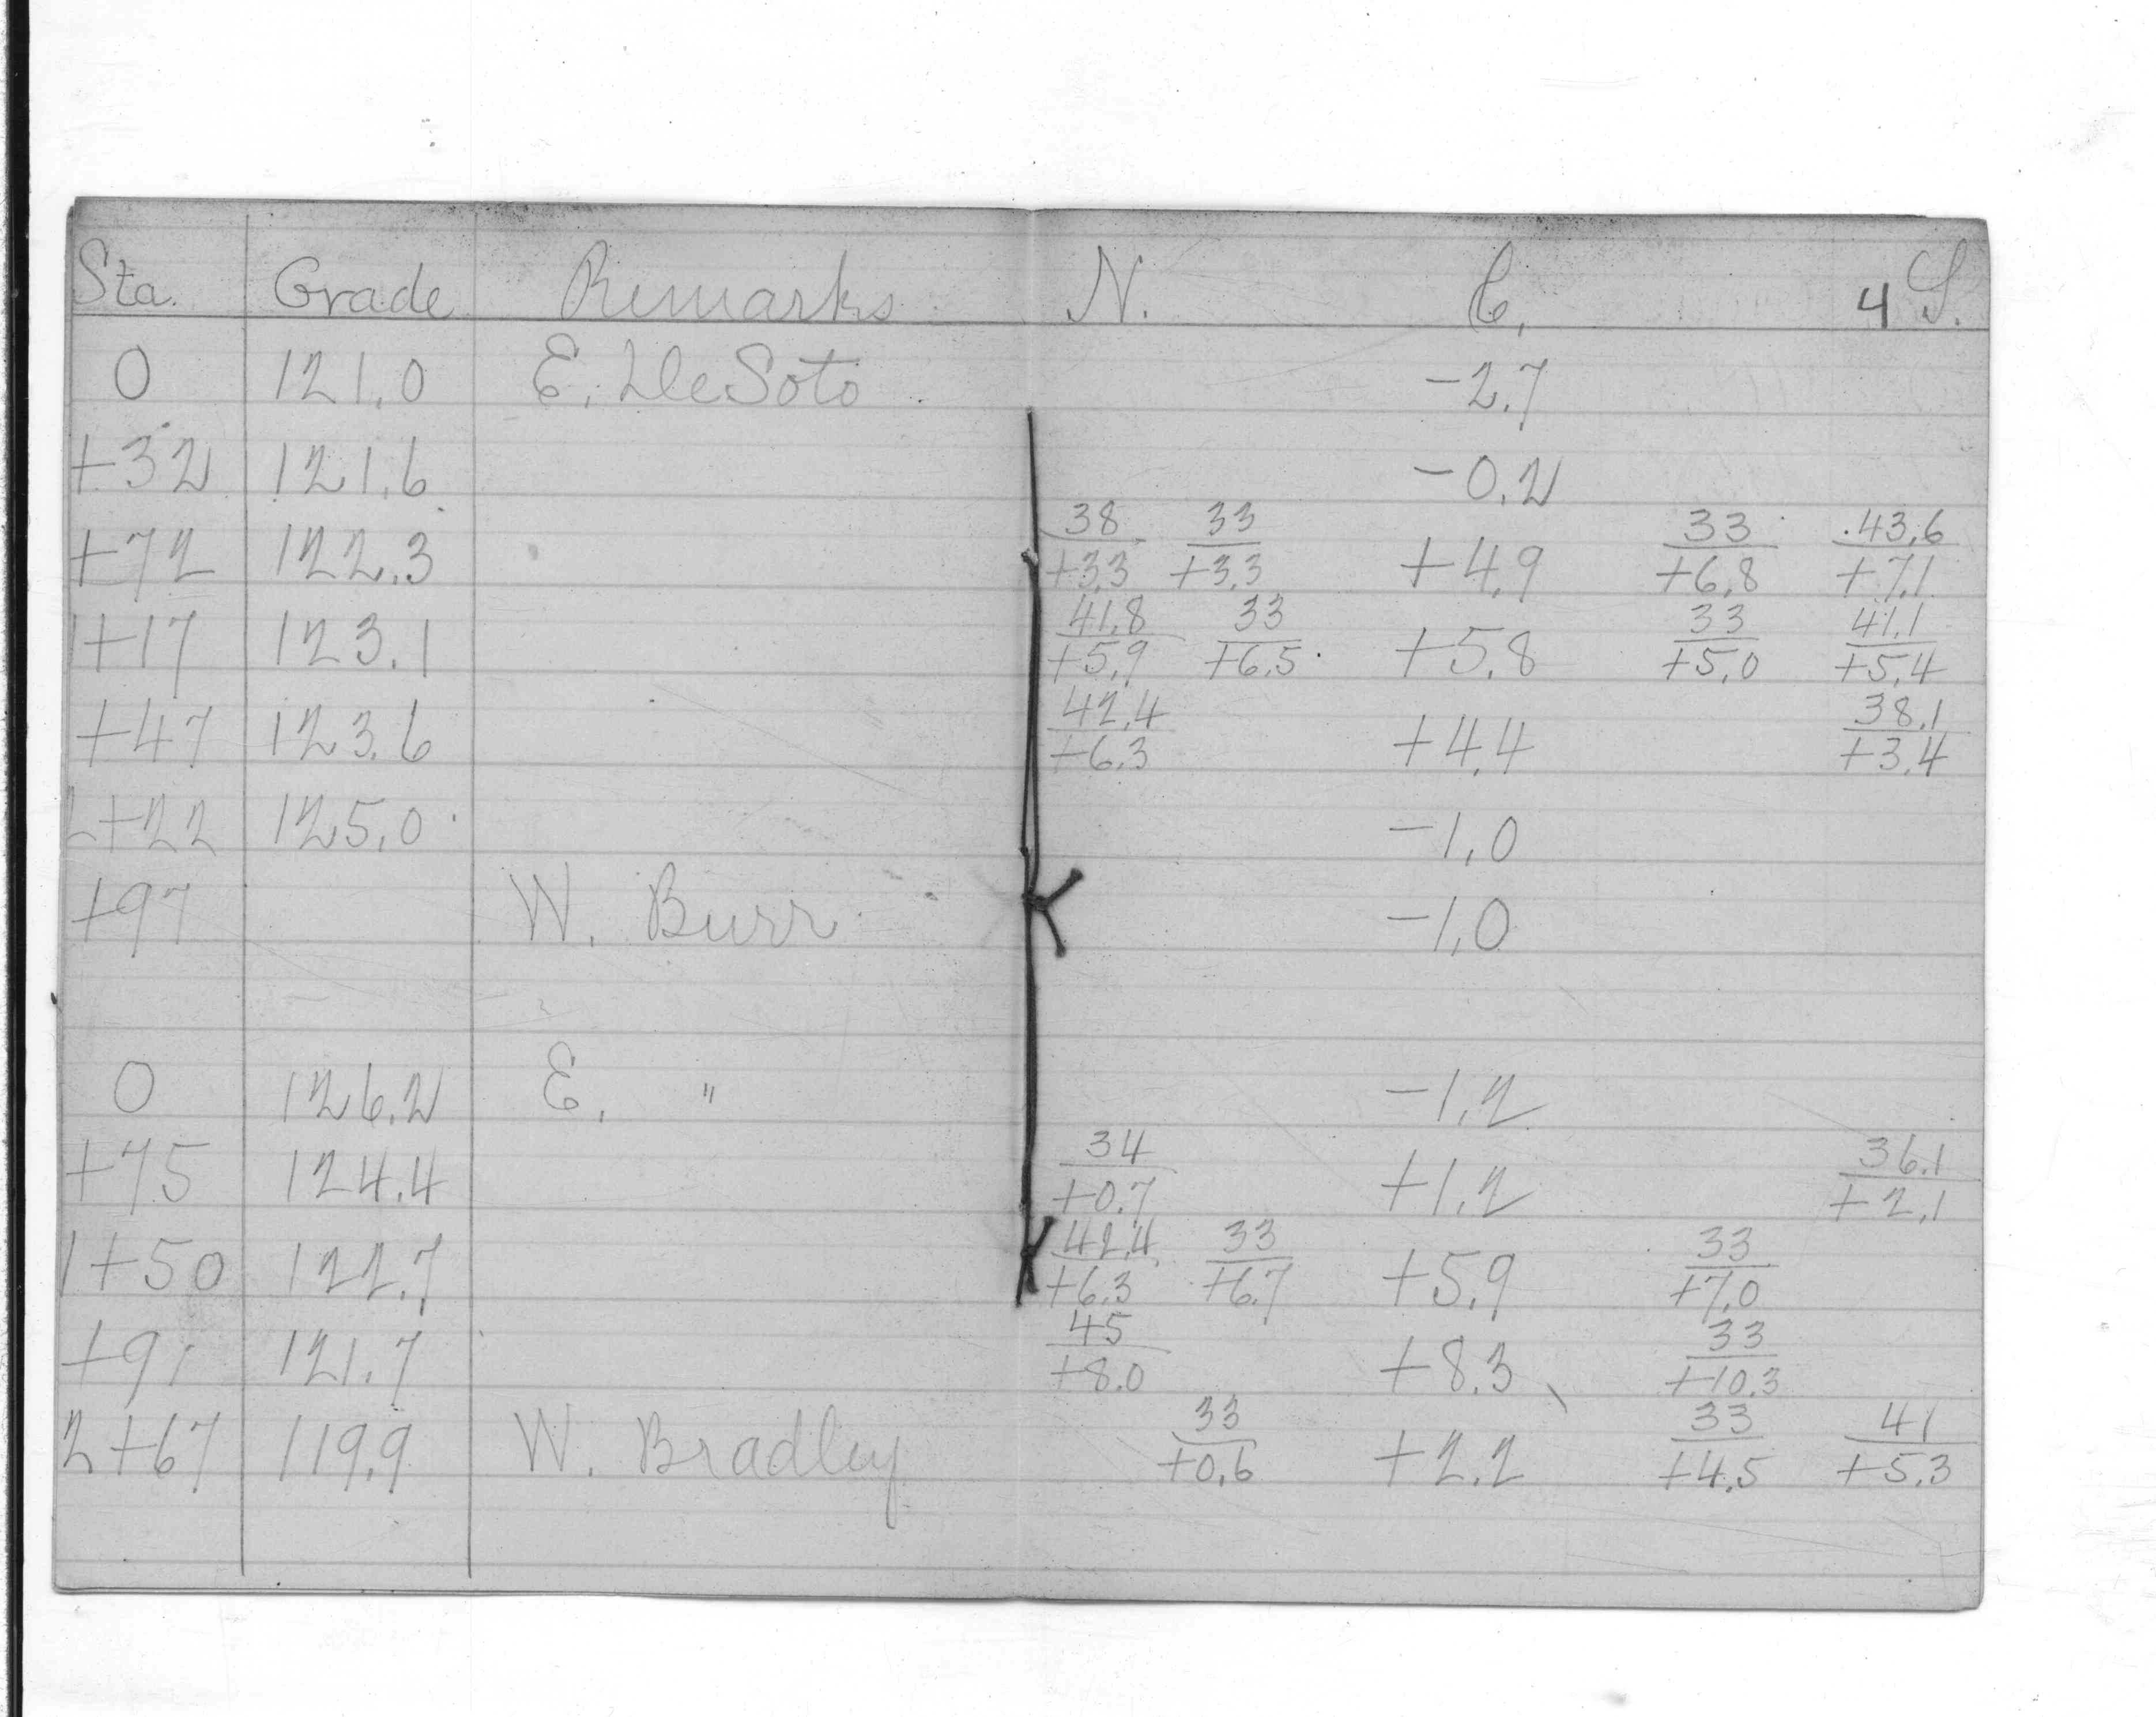 Sta. Grade Remarks N. C. 4 S.
0 121.0 E. DeSoto -2.7
+32 121.6 -0.2
+72 122.3 38/+3.3 33/+3.3 +4.9 33/+6.8 43.6/+7.1
1+17 123.1 41.8/+5.9 33/+6.5 +5.8 33/+5.0 41.1/+5.4
+47 123.6 42.4/+6.3 +4.4 38.1/+3.4
2+22 125.0 -1.0
+97 W. Burr -1.0
0 126.2 E. " -1.2
+75 124.4 34/+0.7 +1.2 36.1/+2.1
1+50 122.7 42.4/+6.3 33/+6.7 +5.9 33/+7.0
121.7 45/+8.0 +8.3 33/+10.3
2+67 119.9 W. Bradley 33/+0.6 +2.2 33/+4.5 41/+5.3